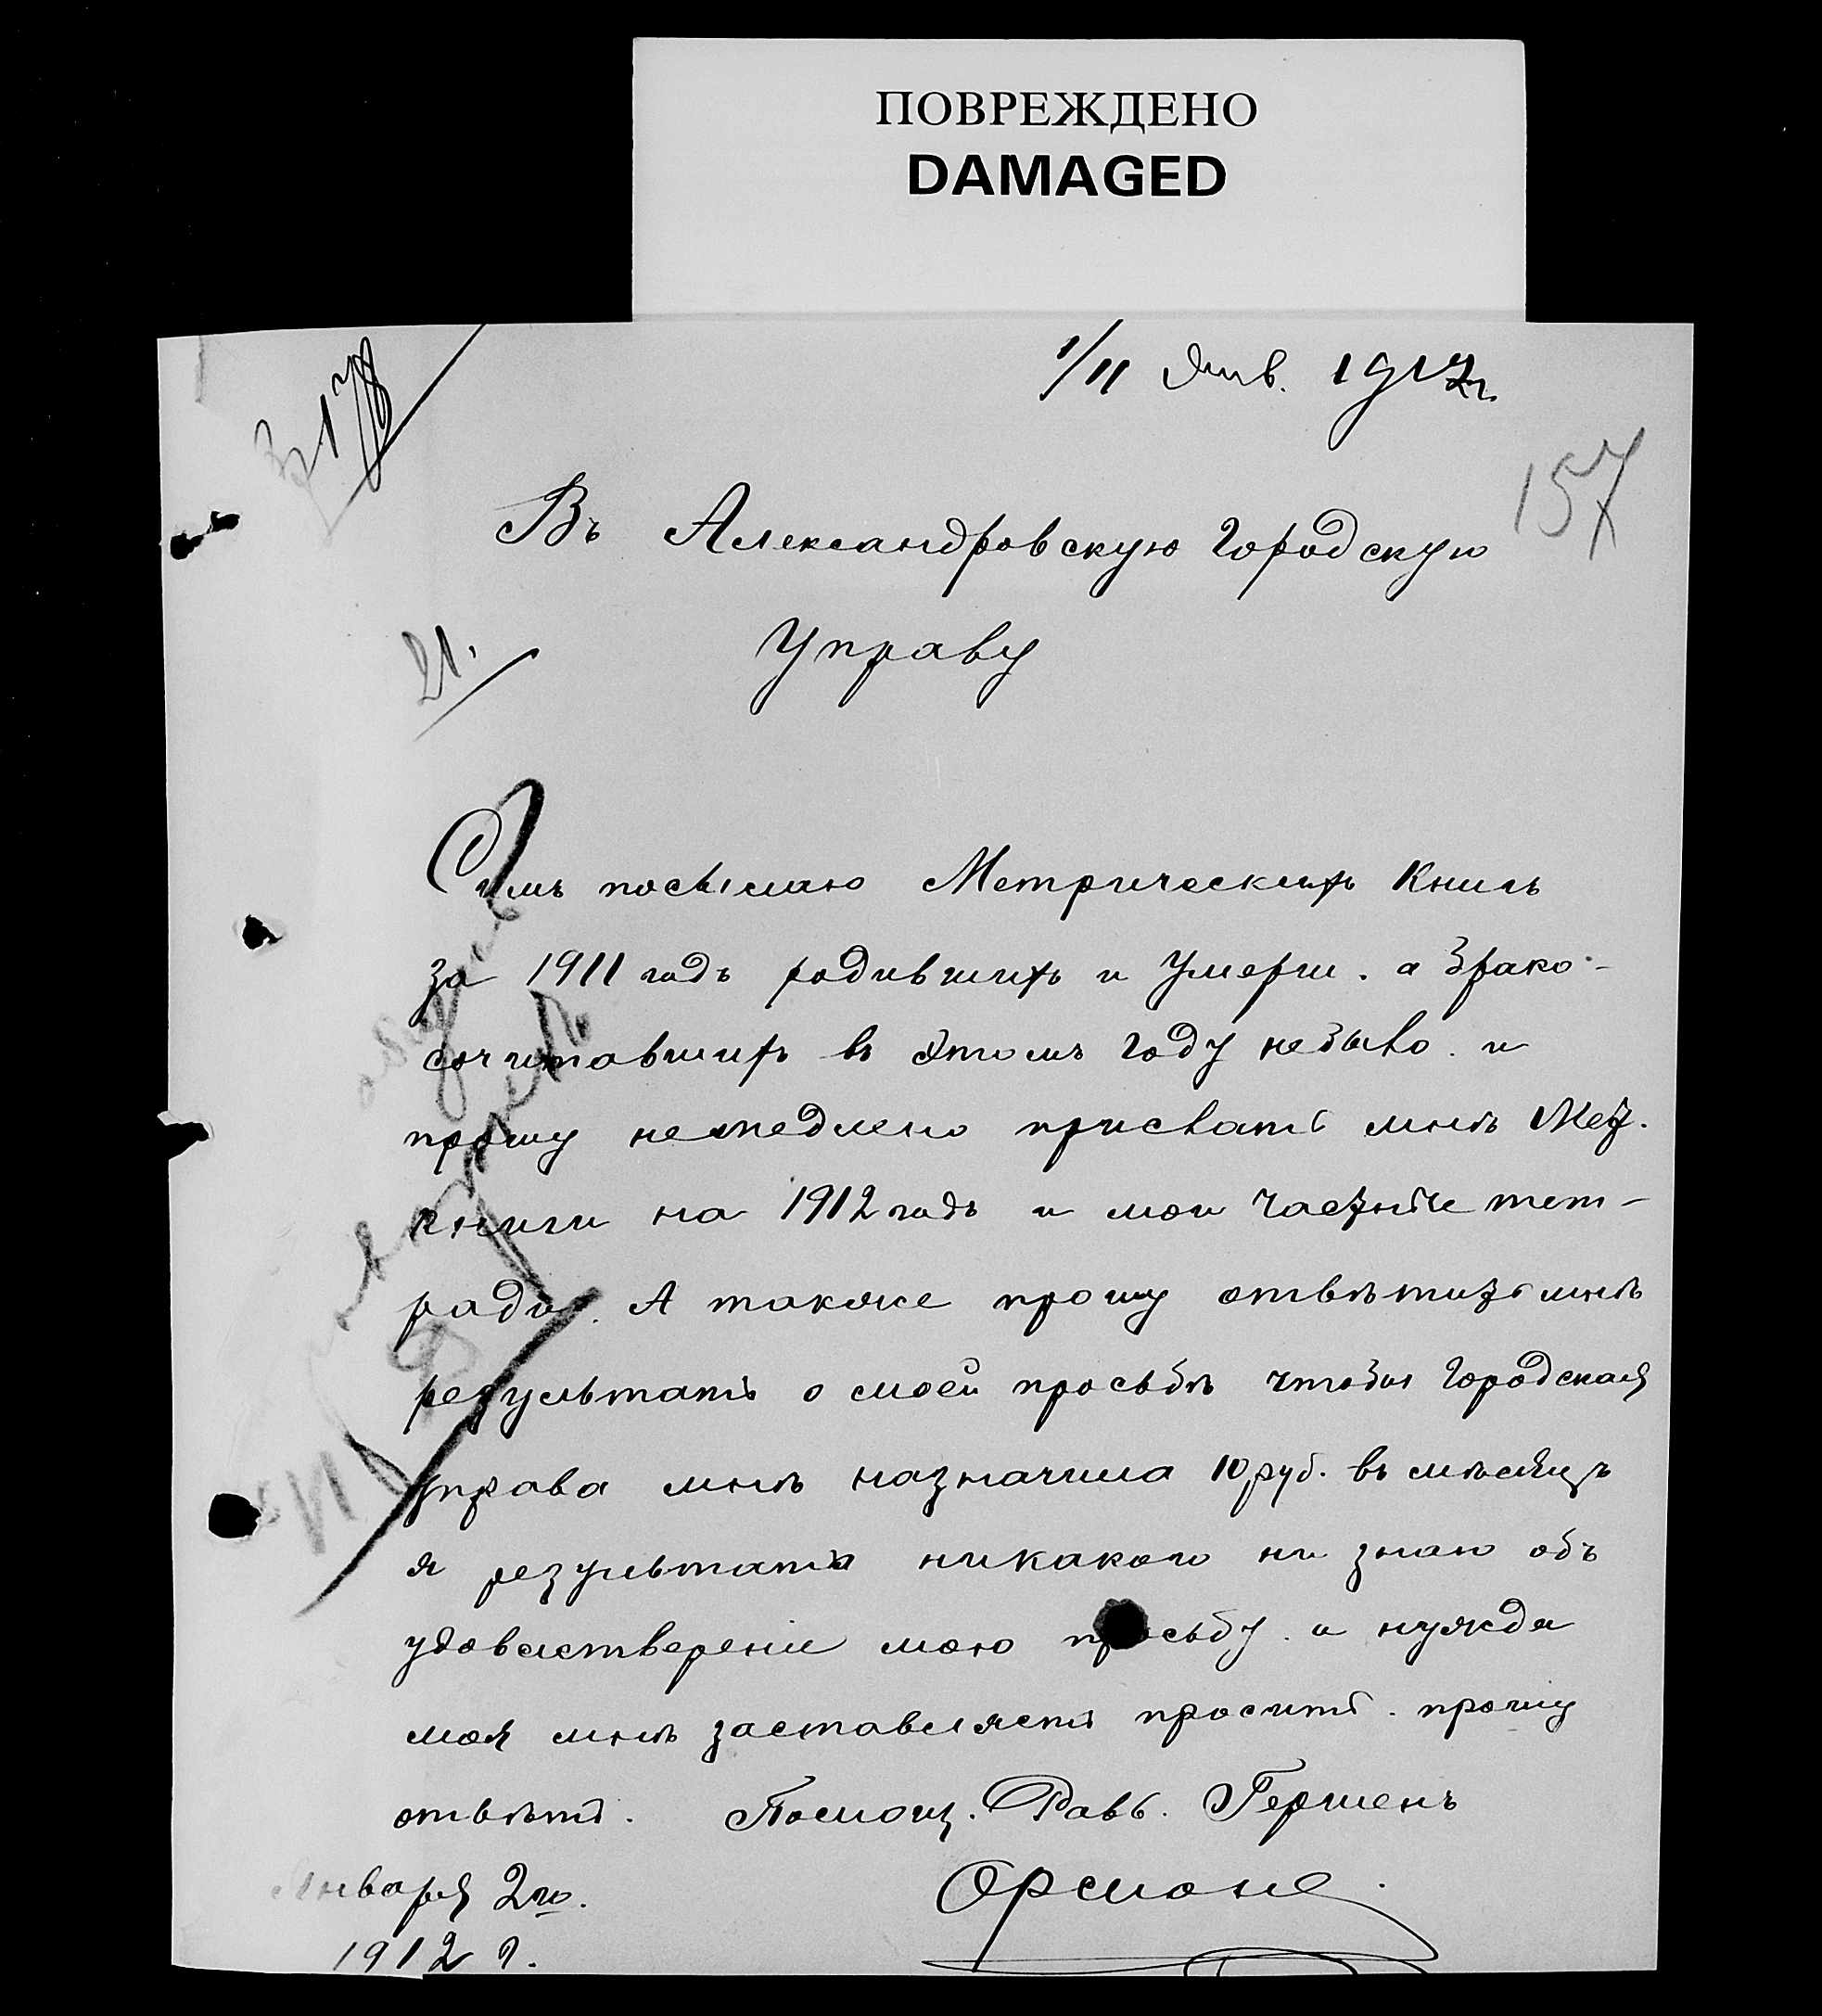 ПОВРЕЖДЕНО
DAMAGED
1/11 Янв. 1912 г.
178
157
Въ Александровскую Городскую
Управу
21.
Симъ посылаю Метрическихъ Книгъ
за 1911 годъ родившихъ и Умерш. а Брако-
сочитавшихъ въ Этомъ Году небыло. и
прошу немедлено прислать мнѣ Мет.
книги на 1912 годъ и мои Частные тет-
ради. А также прошу отвѣтить мнѣ
результатъ о моей просьбѣ чтобы Городская
управа мнѣ назначила 10 руб. въ мѣсяцъ
я результата никакого ни знаю объ
удовлетвереніи мою просьбу. и нужда
моя мнѣ заставляетъ просить. прошу
отвѣтъ. Помощ. Равв. Гершенъ
Января 2го.
1912 г.